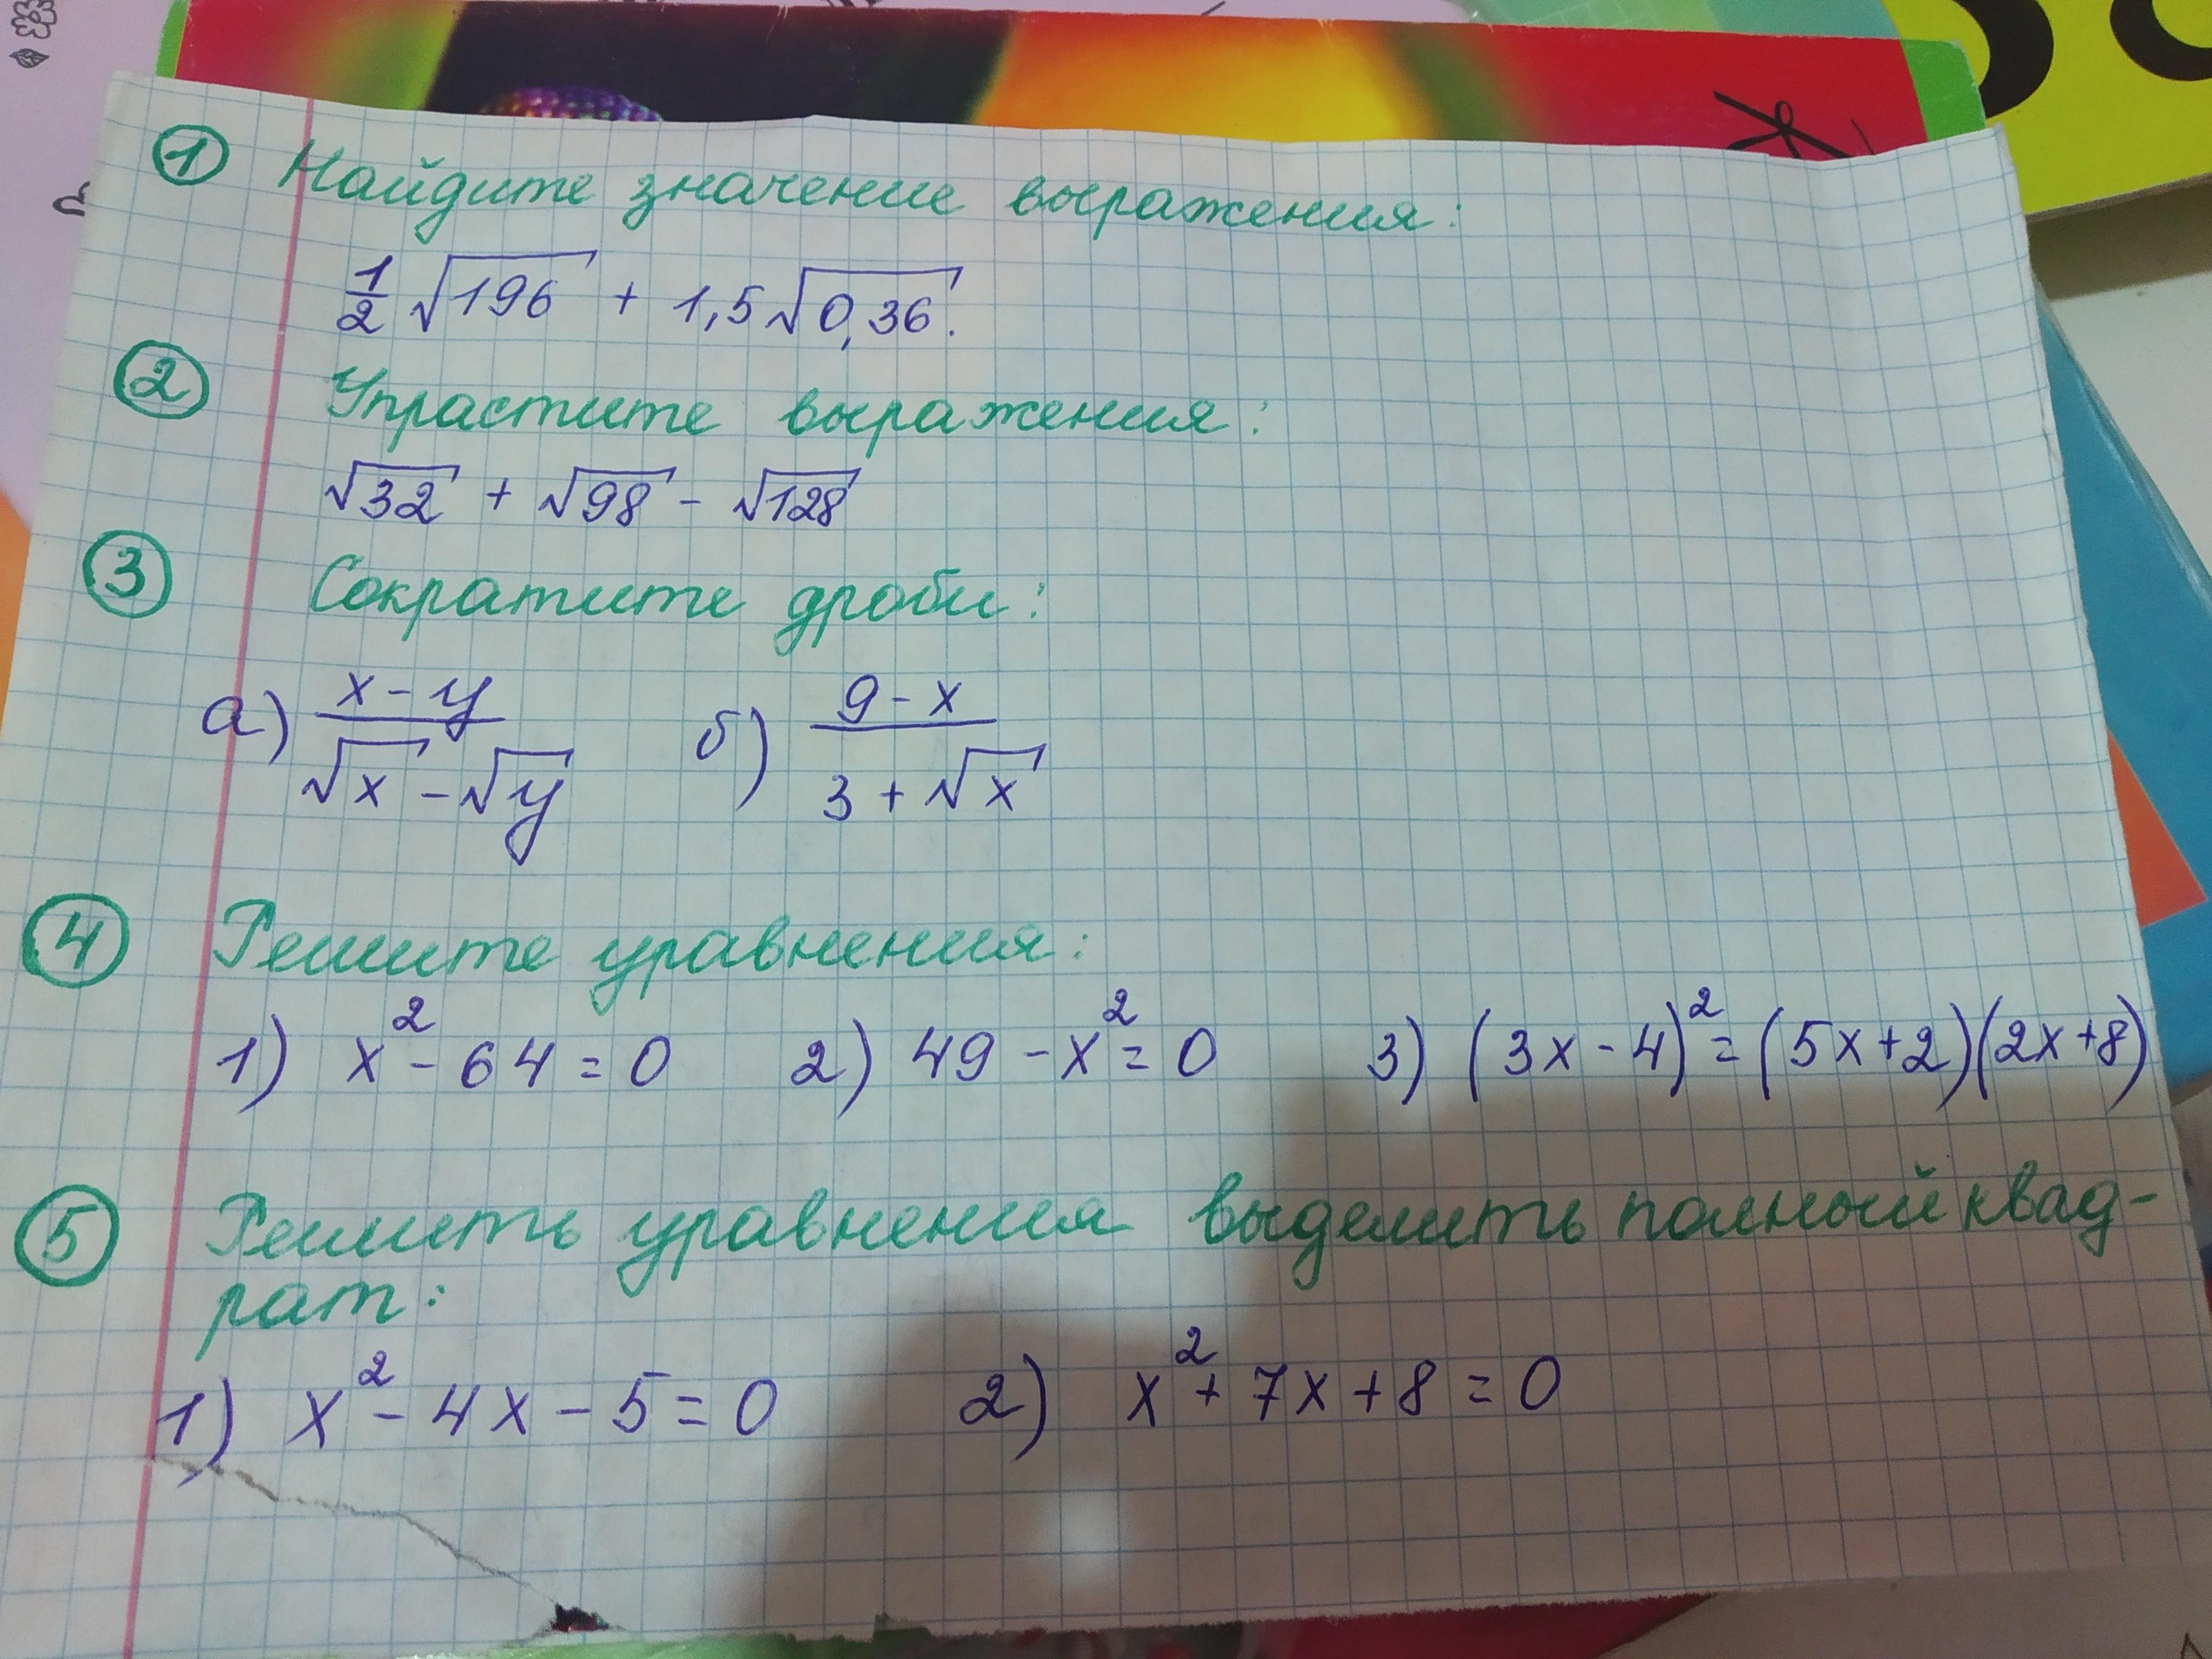 1 Найдите значение выражения:
1/2 √196 + 1,5√0,36.
2 Упрастите выражения:
√32 + √98 - √128
3 Сократите дроби:
а) (x - y)/(√x - √y) б) (9 - x)/(3 + √x)
4 Решите уравнения:
1) x² - 64 = 0 2) 49 - x² = 0 3) (3x - 4)² = (5x + 2)(2x + 8)
5 Решить уравнения выделить полный квад-
рат:
1) x² - 4x - 5 = 0 2) x² + 7x + 8 = 0